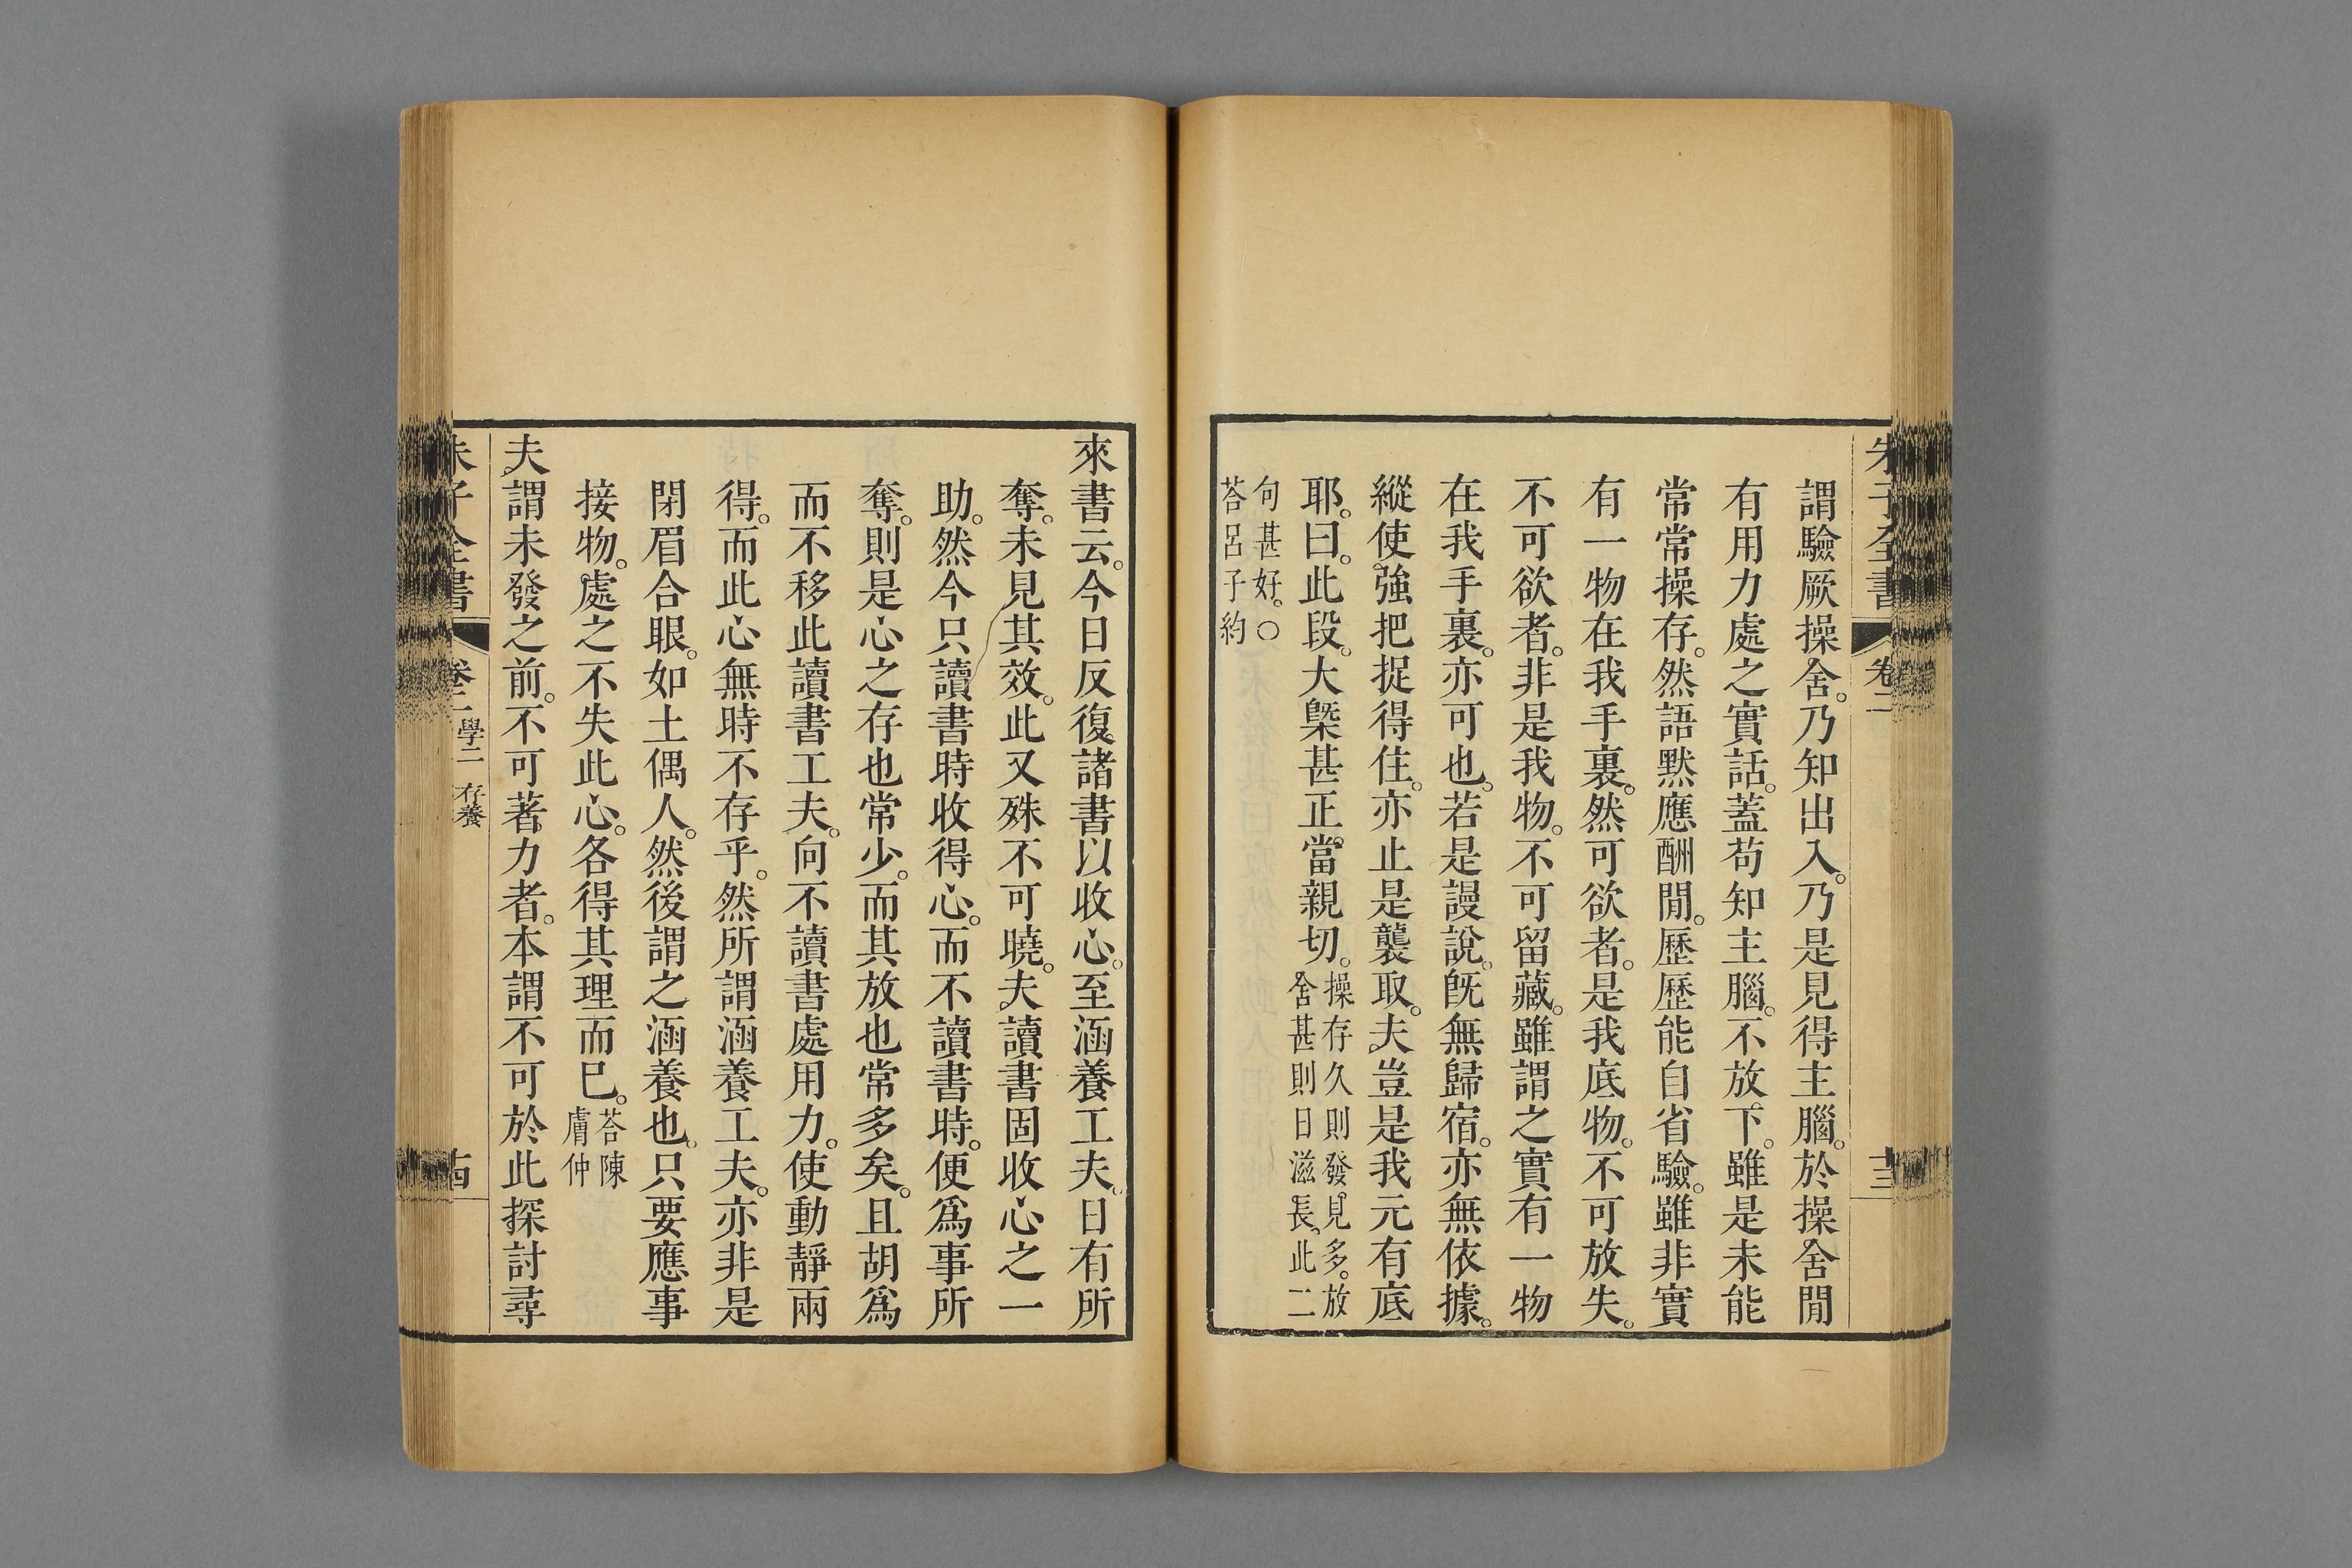 朱子全書 卷二 十三
謂驗厥操舍。乃知出入。乃是見得主腦。於操舍閒
有用力處之實話。蓋苟知主腦。不放下。雖是未能
常常操存。然語默應酬閒。歷歷能自省驗。雖非實
有一物在我手裏。然可欲者。是我底物。不可放失。
不可欲者。非是我物。不可留藏。雖謂之實有一物
在我手裏。亦可也。若是謾說。旣無歸宿。亦無依據。
縱使強把捉得住。亦止是襲取。夫豈是我元有底
耶。曰。此段。大槩甚正當親切。操存久則發見多。放
舍甚則日滋長。此二
句甚好。○
荅呂子約
來書云。今日反復諸書以收心。至涵養工夫。日有所
奪。未見其效。此又殊不可曉。夫讀書固收心之一
助。然今只讀書時收得心。而不讀書時。便爲事所
奪。則是心之存也常少。而其放也常多矣。且胡爲
而不移此讀書工夫。向不讀書處用力。使動靜兩
得。而此心無時不存乎。然所謂涵養工夫。亦非是
閉眉合眼。如土偶人。然後謂之涵養也。只要應事
接物。處之不失此心。各得其理而已。荅陳
膚仲
夫謂未發之前。不可著力者。本謂不可於此探討尋
朱子全書 卷二 學二 存養 十四